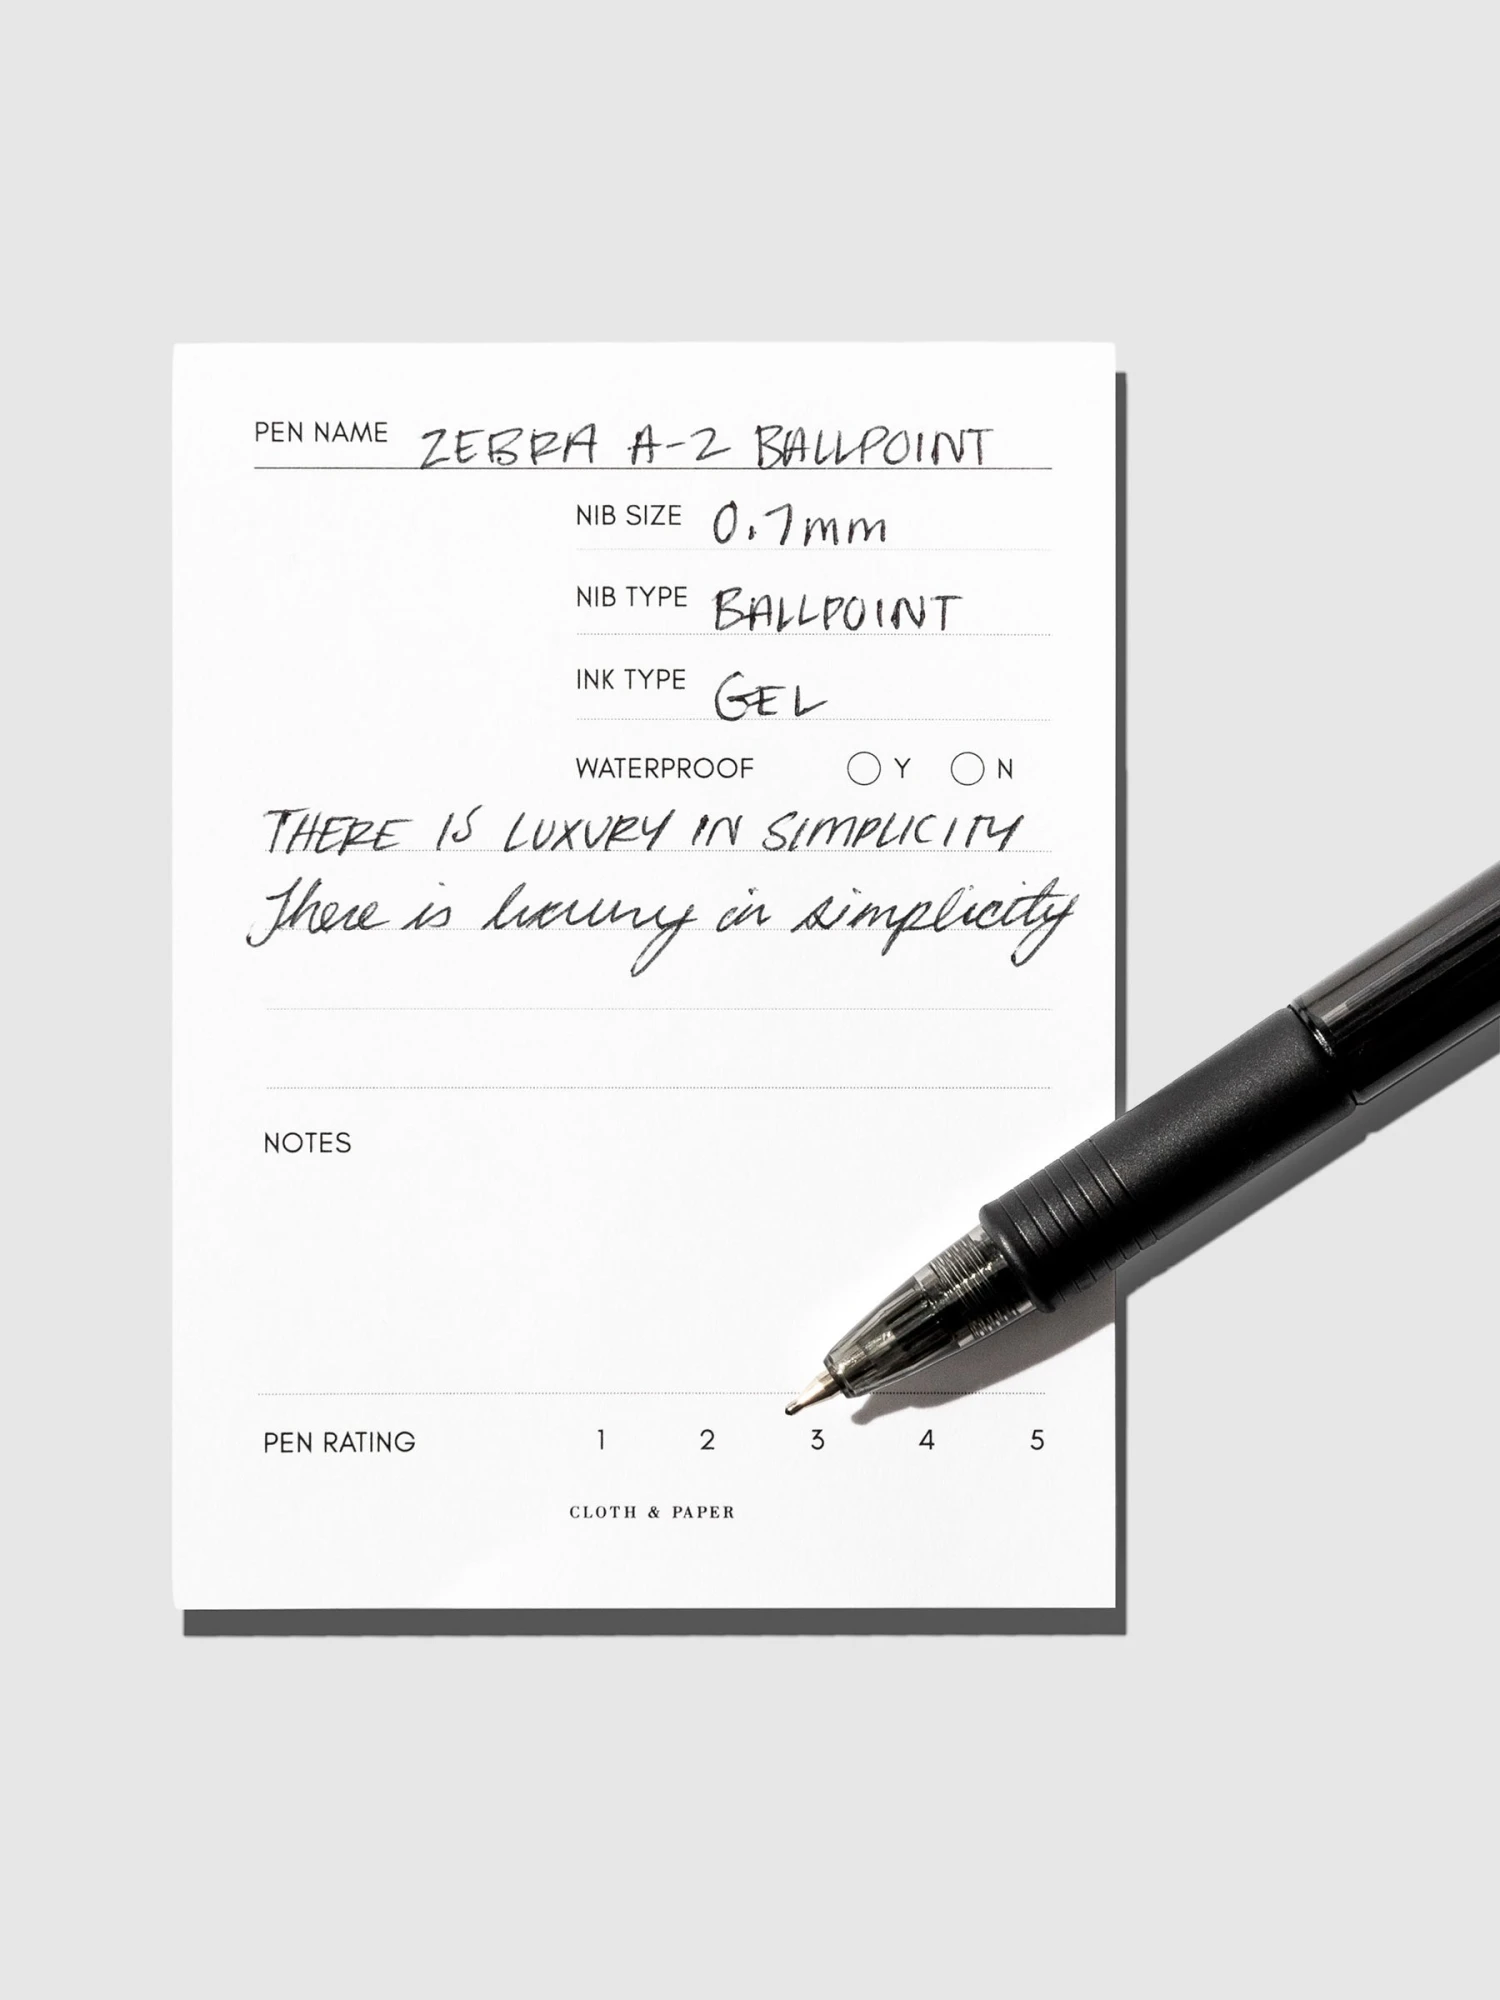 PEN NAME ZEBRA A-2 BALLPOINT
NIB SIZE 0.7mm
NIB TYPE BALLPOINT
INK TYPE GEL
WATERPROOF Y N
THERE IS LUXURY IN SIMPLICITY
There is luxury in simplicity
NOTES
PEN RATING 1 2 3 4 5
CLOTH & PAPER